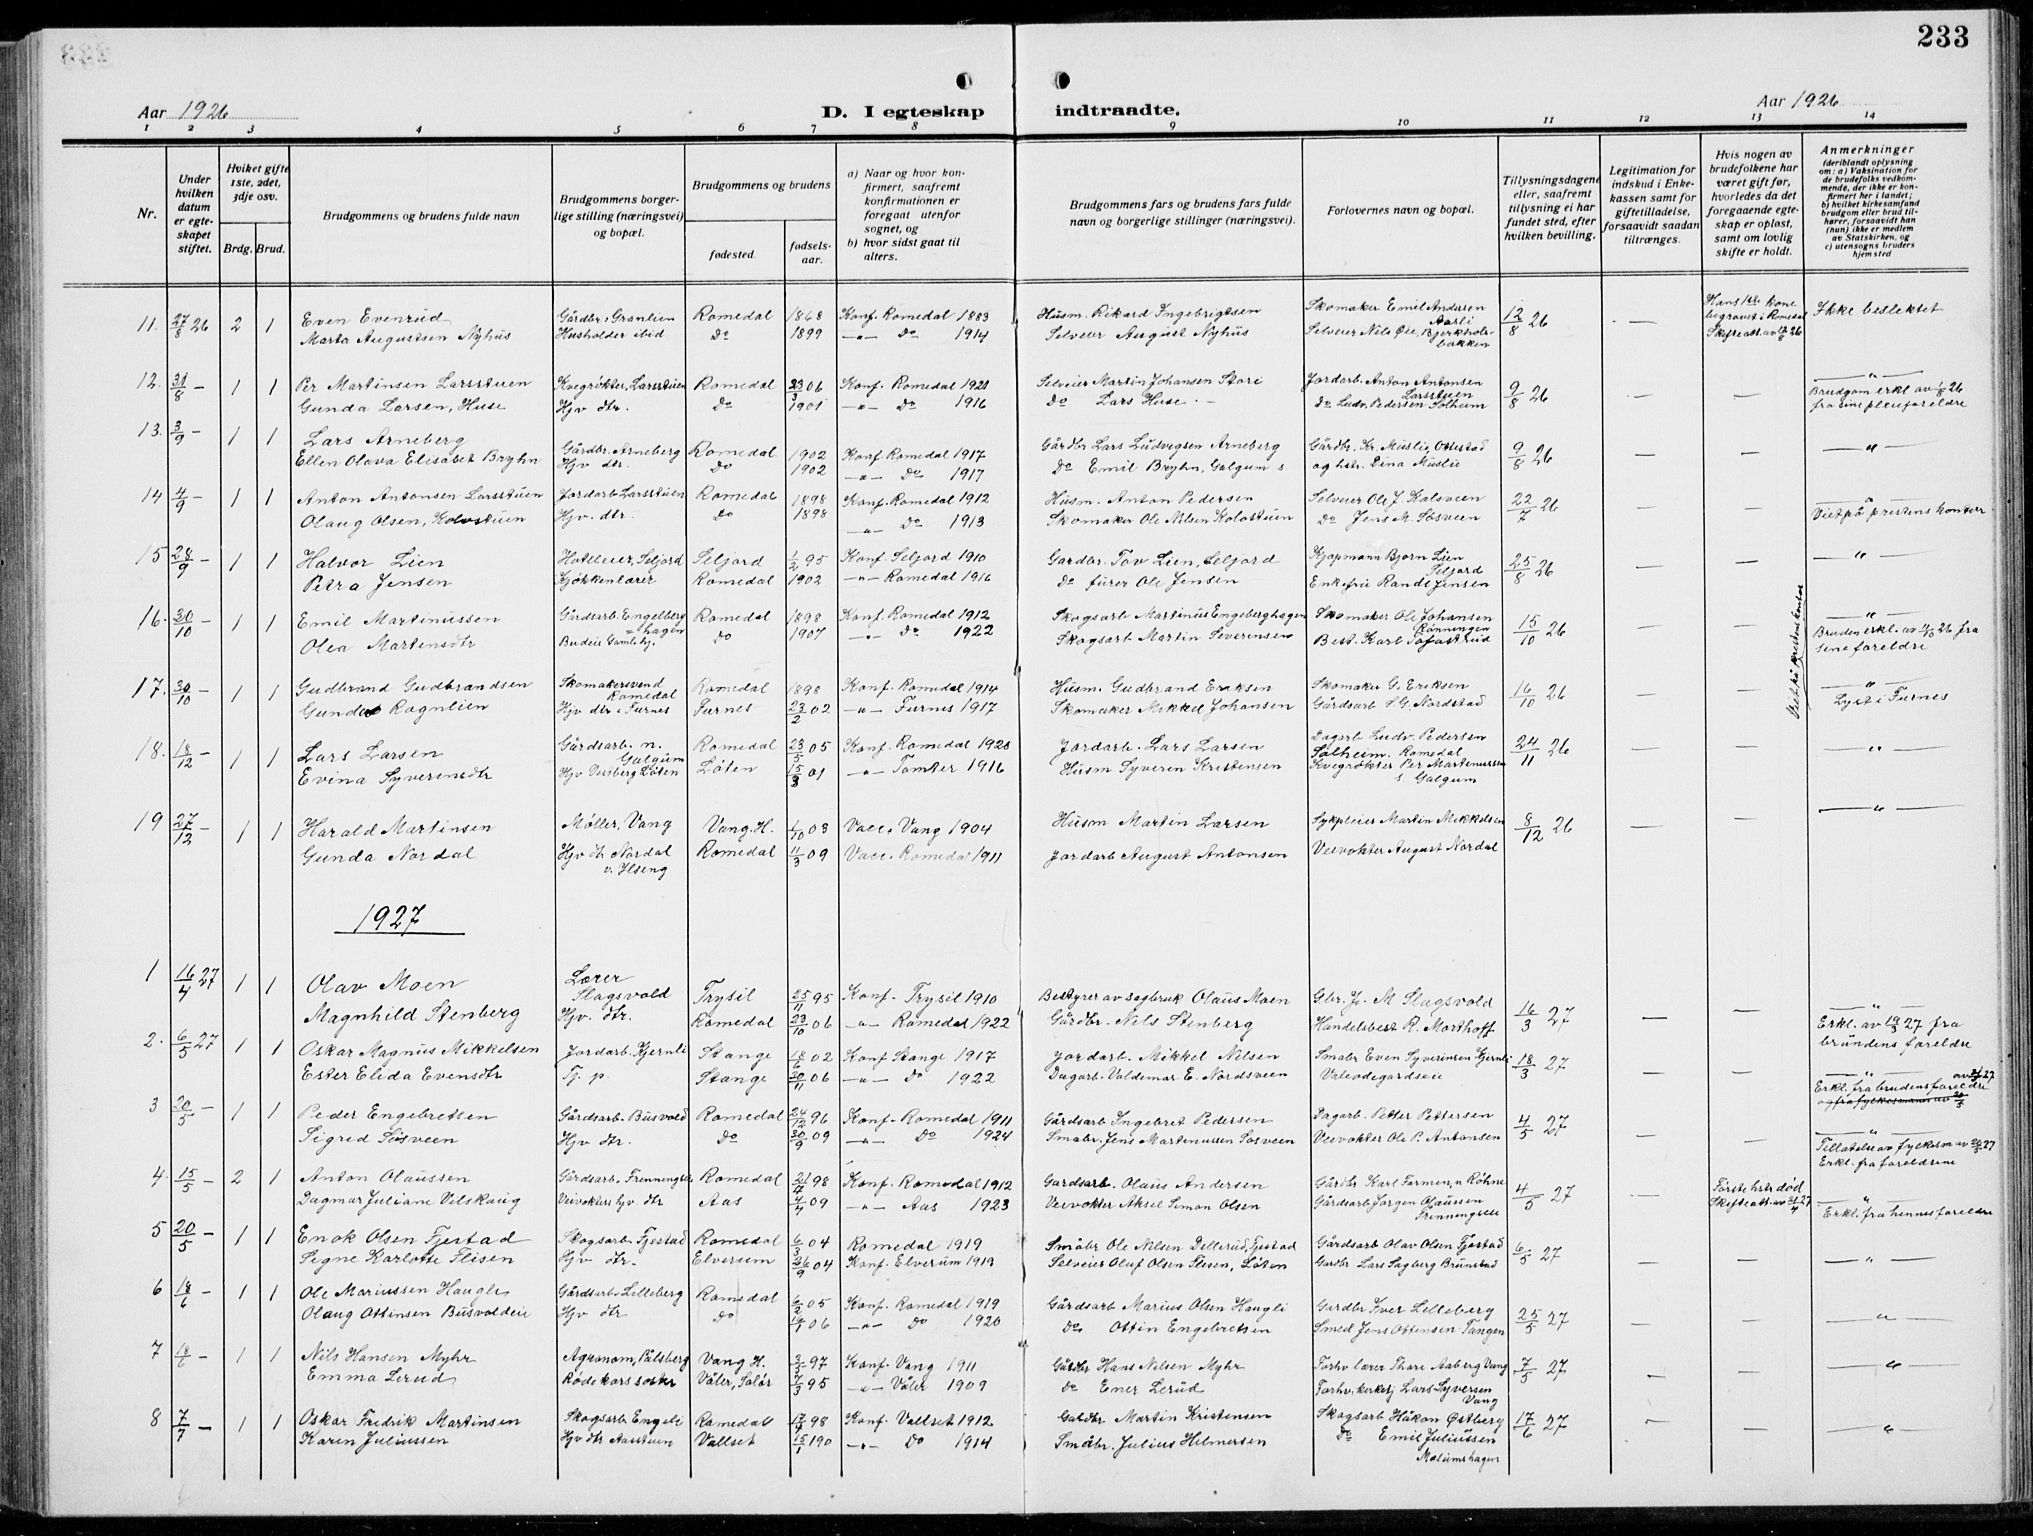 233
Aar 1926
D. I egteskap indtraadte.
Aar 1926
1 2 3 4 5 6 7 8 9 10 11 12 13 14
Nr.
Under hvilken datum er egteskapet stiftet.
Hviket gifte 1ste, 2det, 3dje osv.
Brdg. Brud.
Brudgommens og brudens fulde navn
Brudgommens borgerlige stilling (næringsvei) og bopæl.
Brudgommens og brudens
fødested.
fødselsaar.
a) Naar og hvor konfirmert, saafremt konfirmationen er foregaat utenfor sognet, og
b) hvor sidst gaat til alters.
Brudgommens fars og brudens fars fulde navn og borgerlige stillinger (næringsvei).
Forlovernes navn og bopæl.
Tillysningsdagene eller, saafremt tillysning ei har fundet sted, efter hvilken bevilling.
Legitimation for indskud i Enkekassen samt for giftetilladelse, forsaavidt saadan tiltrænges.
Hvis nogen av brudefolkene har været gift før, hvorledes da det foregaaende egteskap er opløst, samt om lovlig skifte er holdt.
Anmerkninger
(deriblandt oplysning om: a) Vaksination for de brudefolks vedkommende, der ikke er konfirmert her i landet; b) hvilket kirkesamfund brudgom eller brud tilhører, forsaavidt han (hun) ikke er medlem av Statskirken, og c) utensogns bruders hjemsted
11. 27/8 26 2 1 Even Evenrud Gårdbr. Grønlien Romedal 1868 Konf. Romedal 1883 Husm. Rikard Ingebrigtsen Skomaker Emil Andersen Aarli 12/8 26 — Hans 1ste kone begravet i Romedal Ikke beslektet
Marta Augustsen Nyhus Husholder ibid Do 1899 —"— Do 1914 Selveier August Nyhus Selveier Nils Øie, Skifteatt. av
12. 31/8 — 1 1 Per Martinsen Larsstuen Kvegrøkter, Larsstuen Romedal 23/3 06 Konf. Romedal 1921 Selveier Martin Johansen Stori Jordarb. Anton Antonsen Larsstuen 9/8 26 — — —"—
Gunda Larsen, Huse Hjv. dtr. Do 1901 —"— Do 1916 Do Lars Huse Do Ludv. Pedersen Solheim Brudgom erkl. av 1/8 26 fra sine pleieforeldre
13. 3/9 — 1 1 Lars Arneberg Gårdbr. Arneberg Romedal 1902 Konf. Romedal 1917 Gårdbr Lars Ludvigsen Arneberg Gårdbr. Kr. Muslie, Ottestad 9/8 26 — — —"—
Ellen Olava Elisabet Bryhn Hjv. dtr. Do 1902 —"— Do 1917 Do Emil Bryhn, Galgum s. og hstr. Dina Muslie
14 4/9 — 1 1 Anton Antonsen Larsstuen Jordarb Larsstuen Romedal 1898 Konf. Romedal 1912 Husm. Anton Pedersen Selveier Ole J. Kalsveen 22/7 26 — — —"—
Olaug Olsen, Kolostuen Hjv. dtr. Do 1898 —"— Do 1913 Skomaker Ole Nilsen Kolostuen Do Jens M. Søsveen Viet på prestens kontor
15 28/9 — 1 1 Halvor Lien Hotteleier, Seljord Seljord 1/2 95 Konf. Seljord 1910 Gardbr. Tov Lien, Seljord Kjøpmann Bjørn Lien Seljord 25/8 26 — — —"—
Petra Jensen Kjøkkenlærer Romedal 1902 —"— Romedal 1916 Do fürer Ole Jensen Enkefrue Randi Jensen
16. 30/10 — 1 1 Emil Martinussen Gårdsarb. Engelberghagen Romedal 1898 Konf. Romedal 1912 Skogsarb Martinus Engeberghagen Skomaker Ole Johansen Rønningen 15/10 26 — — —"—
Olea Martinsdtr Budeie Gamlebj. Do 1907 —"— Do 1922 Skogsarb Martin Severinsen Best. Karl Tofastrud Bruden erkl. av 4/10 26 fra sine foreldre
17. 30/10 — 1 1 Gudbrand Gudbrandsen Skomakersvend Romedal Romedal 1898 Konf. Romedal 1914 Husm. Gudbrand Eriksen Skomaker G. Eriksen 16/10 26 — Viet på prestens kontor —"—
Gunda Rognlien Hjv dtr i Furnes Furnes 23/2 02 —"— Furnes 1917 Skomaker Mikkel Johansen Gårdsarb S. G. Nordstad Lyst i Furnes
18. 18/12 — 1 1 Lars Larsen Gårdsarb. n. Galgum Romedal 23/5 05 Konf. Romedal 1920 Jordarb. Lars Larsen Dagarb Ludv. Pedersen Solheim. Romedal 24/11 26 — — —"—
Evina Syverensdtr Hjv Vestberg Løten Løten 15/3 01 —"— Tomter 1916 Husm Syveren Kristensen Kvegrøkter Per Martinussen s. Galgum
19 27/12 — 1 1 Harald Martinsen Møller, Vang Vang. H. 1/10 03 Vacc. Vang 1904 Husm Martin Larsen Sykpleier Martin Mikkelsen 8/12 26 — — —"—
Gunda Nordal Hjv dtr Nordal v. Ilseng Romedal 11/3 09 Vacc. Romedal 1911 Jordarb August Antonsen Veivokter August Nordal
1927
1 16/4 27 1 1 Olav Moen Lærer Slagsvold Trysil 25/11 95 Konf. Trysil 1910 Bestyrer av sagbruk Olaus Moen Gbr. Jo. M Slagsvold 16/3 27 — — —"—
Magnhild Stenberg Hjv. dtr. Romedal 23/10 06 —"— Romedal 1922 Gårdbr. Nils Stenberg Handelsbest R. Morthoff Erkl. av 19/3 27 fra brudens foreldre
2. 6/5 27 1 1 Oskar Magnus Mikkelsen Jordarb. Kjernli Stange 18/6 02 Konf Stange 1917 Jordarb. Mikkel Nilsen Småbr Even Syverinsen Kjernli 18/3 27 — — —"—
Ester Elida Evensdtr Tj. p. Stange 30/11 06 —"— Do 1922 Dagarb. Valdemar E. Nordsveen Valeodegardseie Erkl. fra brudens foreldre
3 20/5 — 1 1 Peder Engebretsen Gårdsarb. Busvold Romedal 24/12 96 Konf. Romedal 1911 Gårdsarb Ingebret Pedersen Dagarb. Petter Pettersen 4/5 27 — — —"—
Sigrid Søsveen Hjv dtr. Do 30/9 09 —"— Do 1924 Småbr. Jens Martinussen Søsveen Veivokter Ole P. Antonsen Tillatelse av fylkesm av 20/5 27 Erkl. fra foreldrene
4. 15/5 — 2 1 Anton Olaussen Gårdsarb. Frenningseie Romedal 98 Konf. Romedal 1912 Gardsarb. Olaus Andersen Gårdbr Karl Farmen, n Røhne 4/5 27 — Første hstr død —"—
Dagmar Juliane Vilskaug Veivokters hjv dtr Aas 4/4 09 —"— Aas 1923 Veivokter Aksel Simon Olsen Gårdsarb Jørgen Olaussen Frenningseie Skifteatt. av 21/4 27 Erkl. fra hennes foreldre
5 20/5 — 1 1 Enok Olsen Fjestad Skogsarb. Fjestad Romedal 6/3 04 Romedal 1919 Småbr Ole Nilsen Dellerud, Fjestad Gårdsarb Olav Olsen Fjestad 6/5 27 — — "
Signe Karlotte Flisen Hjv dtr. Elverum 26/9 04 Konf. Elverum 1919 Selveier Oluf Olsen Flisen, Løten Gardbr Lars Sagberg Brunstad
6 18/6 — 1 1 Ole Mariussen Haugli Gårdsarb Lilleberg Romedal 6/2 05 Konf. Romedal 1919 Gårdsarb Marius Olsen Haugli Gardbr Iver Lilleberg 25/5 27 — — —"—
Olaug Ottinsen Busvoldeie Hjv dtr Do 16/1 06 —"— Do 1920 Do Ottin Engebretsen Smed Jens Ottinsen Tangen
7 18/6 — 1 1 Nils Hansen Myhr Agronom, Pålsberg Vang H. 97 Konf. Vang 1911 Gårdbr Hans Nilsen Myhr Forhv lærer Thore Aaberg Vang 7/5 27 — — —"—
Emma Lerud Røde kors søster Våler, Solør 95 —"— Våler 1909 Do Ener Lerud Forhv. kirkesj Lars Syversen Vang
8 7/7 — 1 1 Oskar Fredrik Martinsen Skogsarb Engeli Romedal 98 Konf. Vallset 1912 Gårdbr Martin Kristensen Skogsarb Håkon Østberg 17/6 27 — — —"—
Karen Juliussen Hjv dtr Aasstuen Vallset 15/1 190 —"— Do 1914 Småbr. Julius Hilmersen Do Emil Juliussen Malumshagen